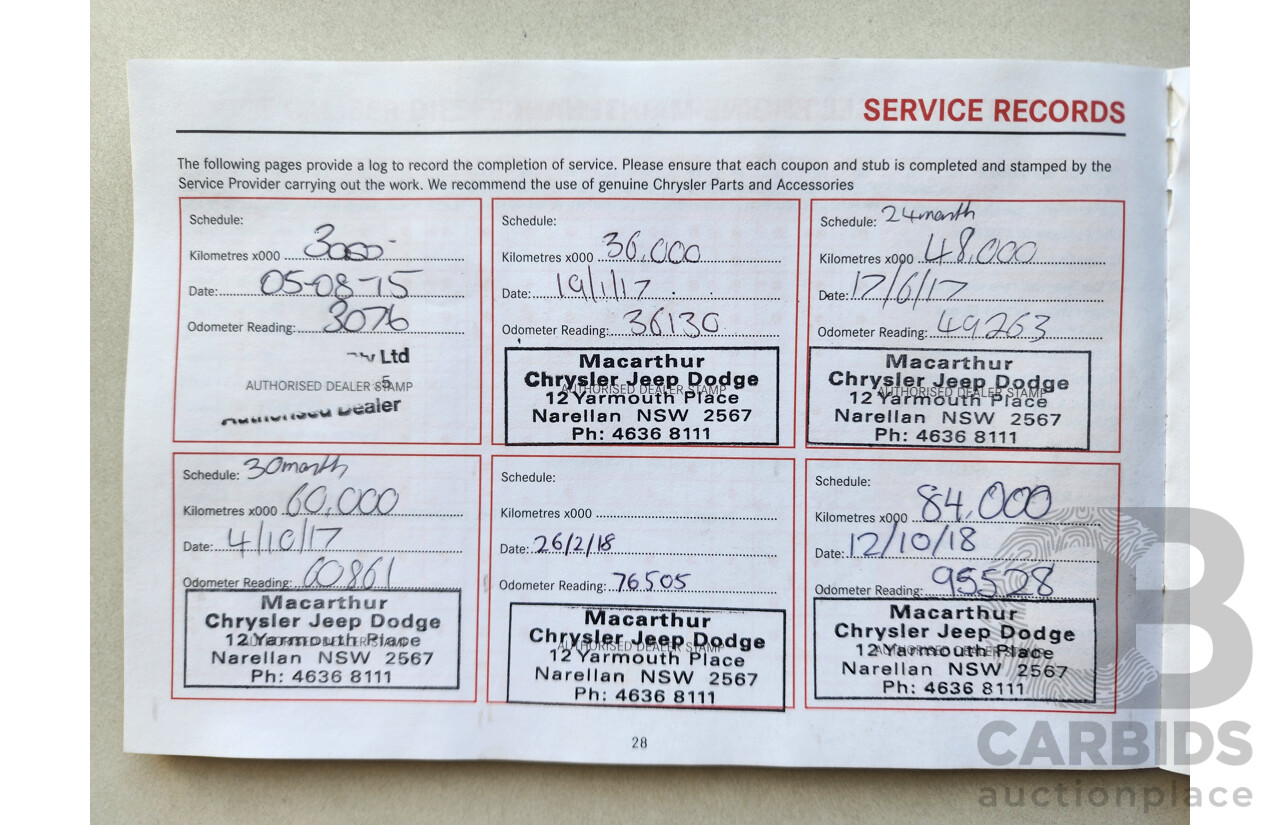 SERVICE RECORDS
The following pages provide a log to record the completion of service. Please ensure that each coupon and stub is completed and stamped by the
Service Provider carrying out the work. We recommend the use of genuine Chrysler Parts and Accessories
Schedule:
Kilometres x000 3000
Date: 05-08-15
Odometer Reading: 3076
Ltd
5
AUTHORISED DEALER STAMP
Authorised Dealer
Schedule:
Kilometres x000 36,000
Date: 19/1/17
Odometer Reading: 36130
Macarthur
Chrysler Jeep Dodge
AUTHORISED DEALER STAMP
12 Yarmouth Place
Narellan NSW 2567
Ph: 4636 8111
Schedule: 24month
Kilometres x000 48,000
Date: 17/6/17
Odometer Reading: 49263
Macarthur
Chrysler Jeep Dodge
AUTHORISED DEALER STAMP
12 Yarmouth Place
Narellan NSW 2567
Ph: 4636 8111
Schedule: 30month
Kilometres x000 60,000
Date: 4/10/17
Odometer Reading: 60861
Macarthur
Chrysler Jeep Dodge
AUTHORISED DEALER STAMP
12 Yarmouth Place
Narellan NSW 2567
Ph: 4636 8111
Schedule:
Kilometres x000
Date: 26/2/18
Odometer Reading: 76505
Macarthur
Chrysler Jeep Dodge
AUTHORISED DEALER STAMP
12 Yarmouth Place
Narellan NSW 2567
Ph: 4636 8111
Schedule:
Kilometres x000 84,000
Date: 12/10/18
Odometer Reading: 95528
Macarthur
Chrysler Jeep Dodge
AUTHORISED DEALER STAMP
12 Yarmouth Place
Narellan NSW 2567
Ph: 4636 8111
28
B
CARBIDS
auctionplace